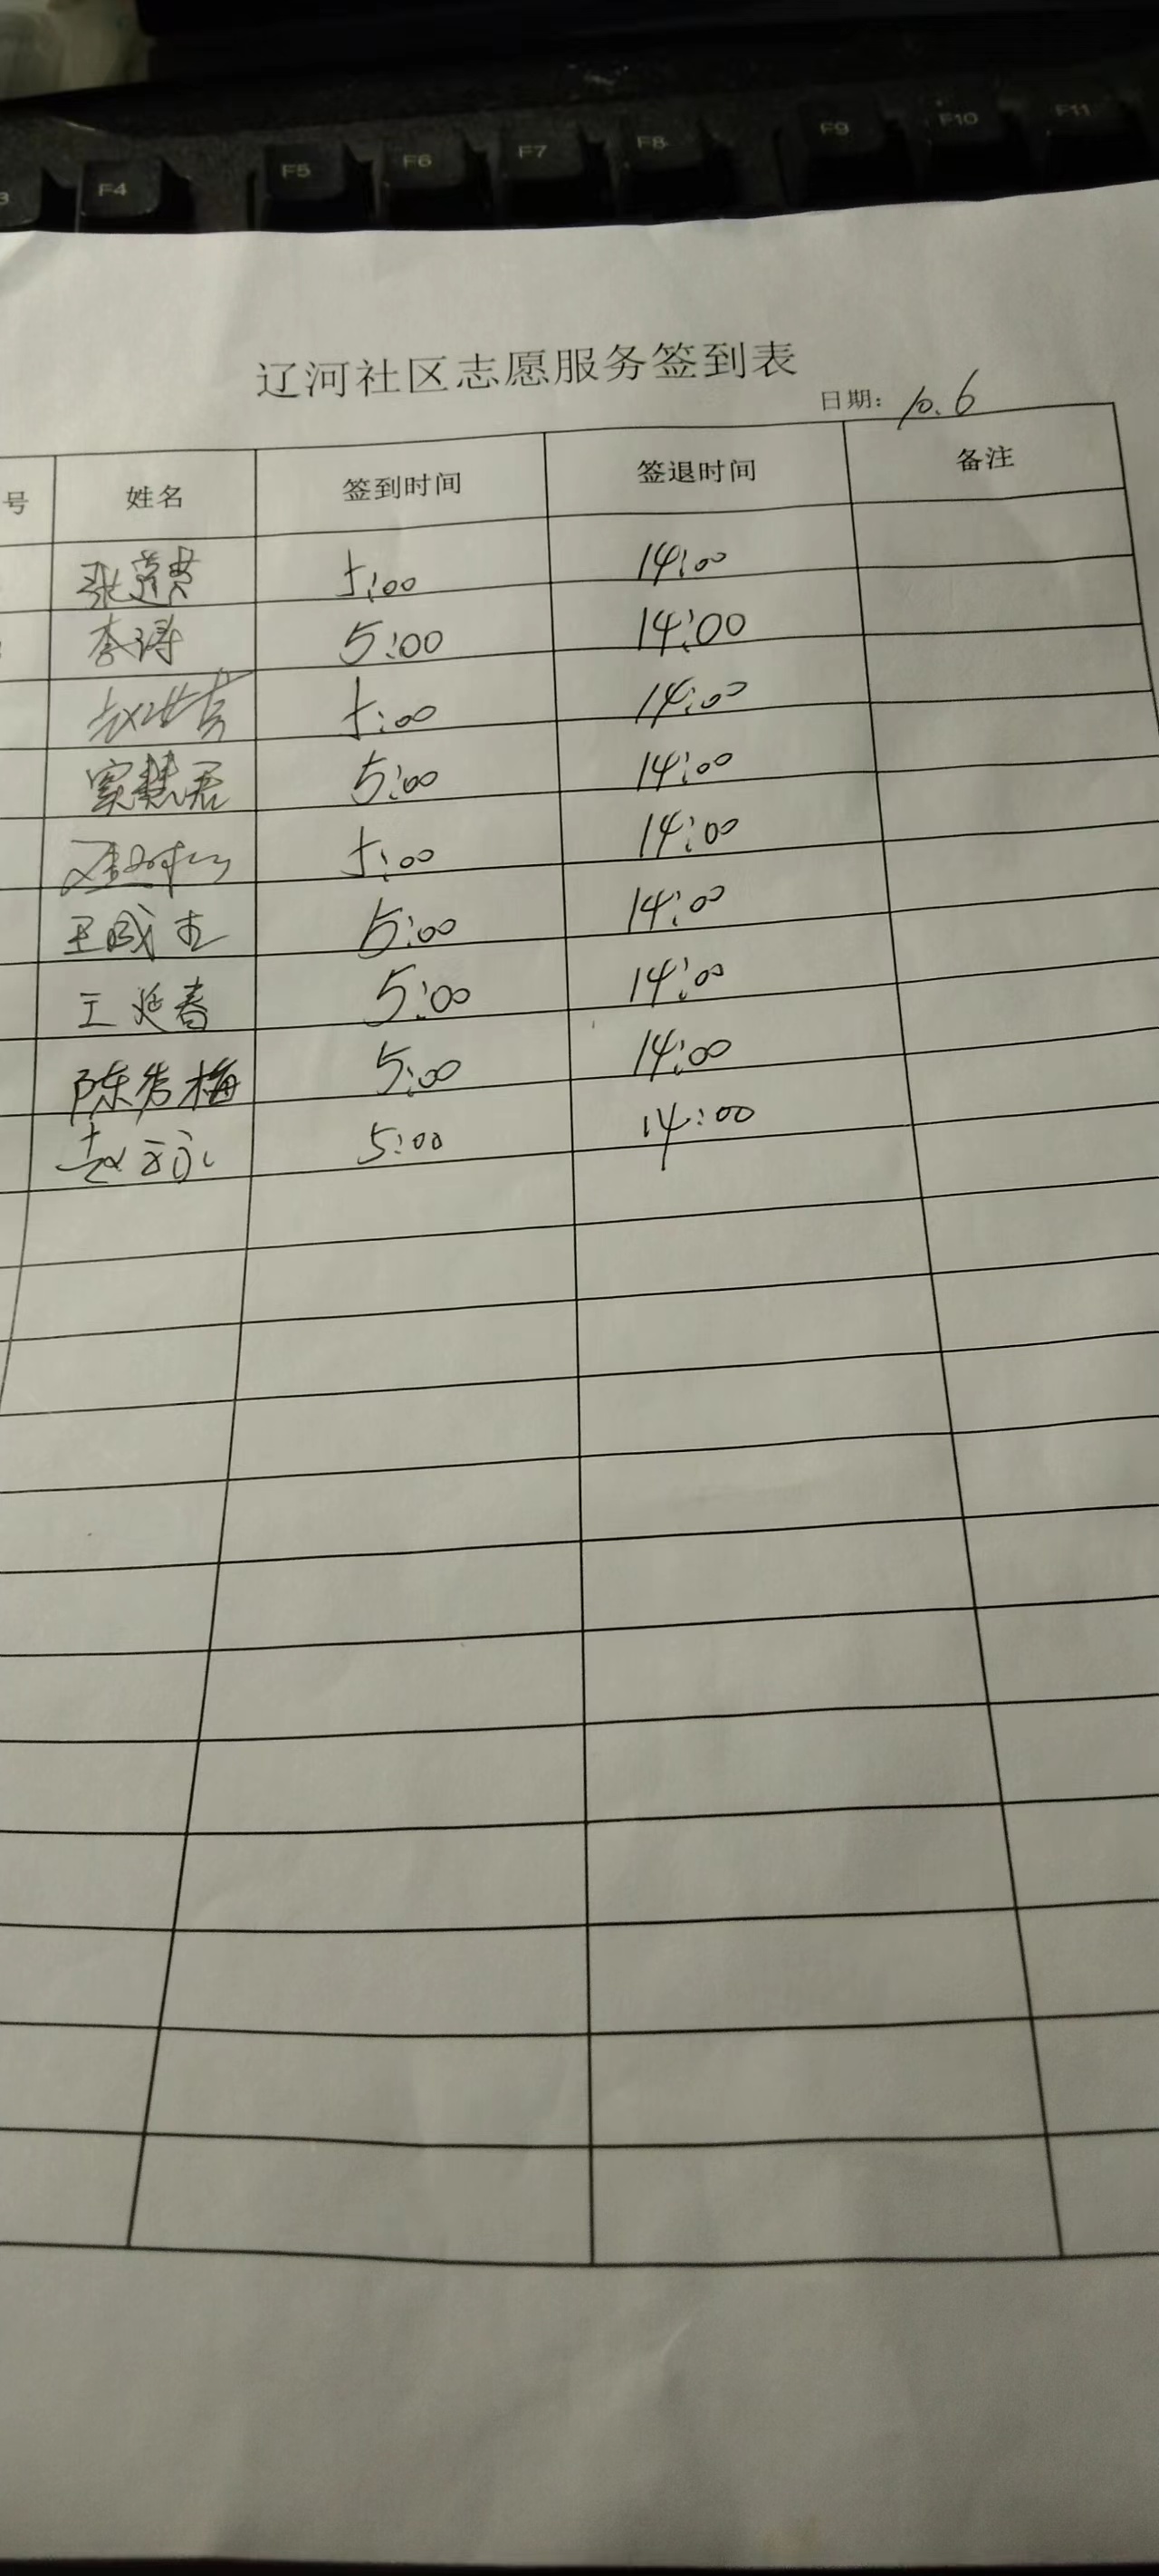 F4 F5 F6 F7 F8 F9 F10 F11
辽河社区志愿服务签到表
日期: 10.6
号 姓名 签到时间 签退时间 备注
5:00 14:00
李涛 5:00 14:00
5:00 14:00
窦慧君 5:00 14:00
5:00 14:00
5:00 14:00
王延春 5:00 14:00
陈秀梅 5:00 14:00
5:00 14:00